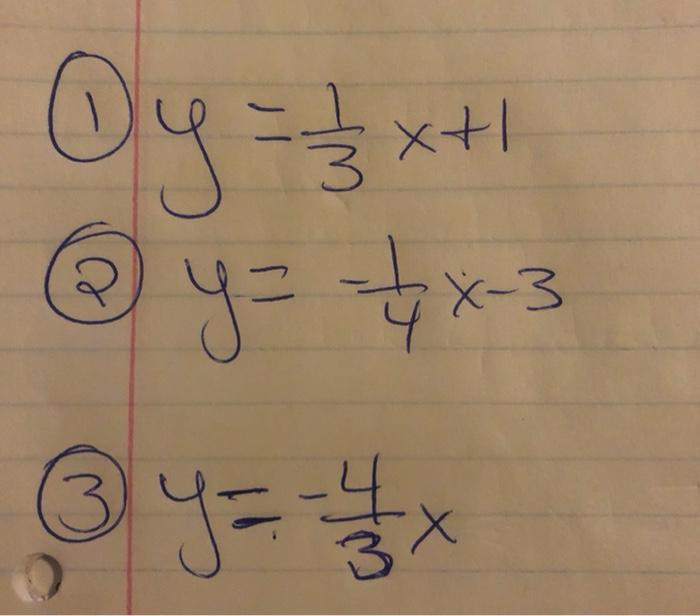 ① y = 1/3 x + 1
② y = -1/4 x - 3
③ y = -4/3 x